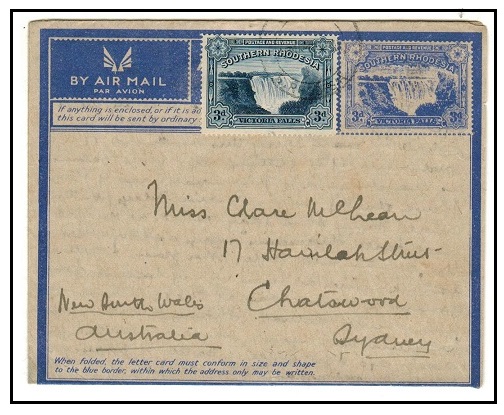 BY AIR MAIL
PAR AVION
If anything is enclosed, or if it is
this card will be sent by ordinary
POSTAGE AND REVENUE
SOUTHERN RHODESIA
3d VICTORIA FALLS 3d
POSTAGE AND REVENUE
SOUTHERN RHODESIA
3d VICTORIA FALLS 3d
Miss Clare
17 Havilah Street
Chatswood
Sydney
New South Wales
Australia
When folded, the letter card must conform in size and shape
to the blue border, within which the address only may be written.